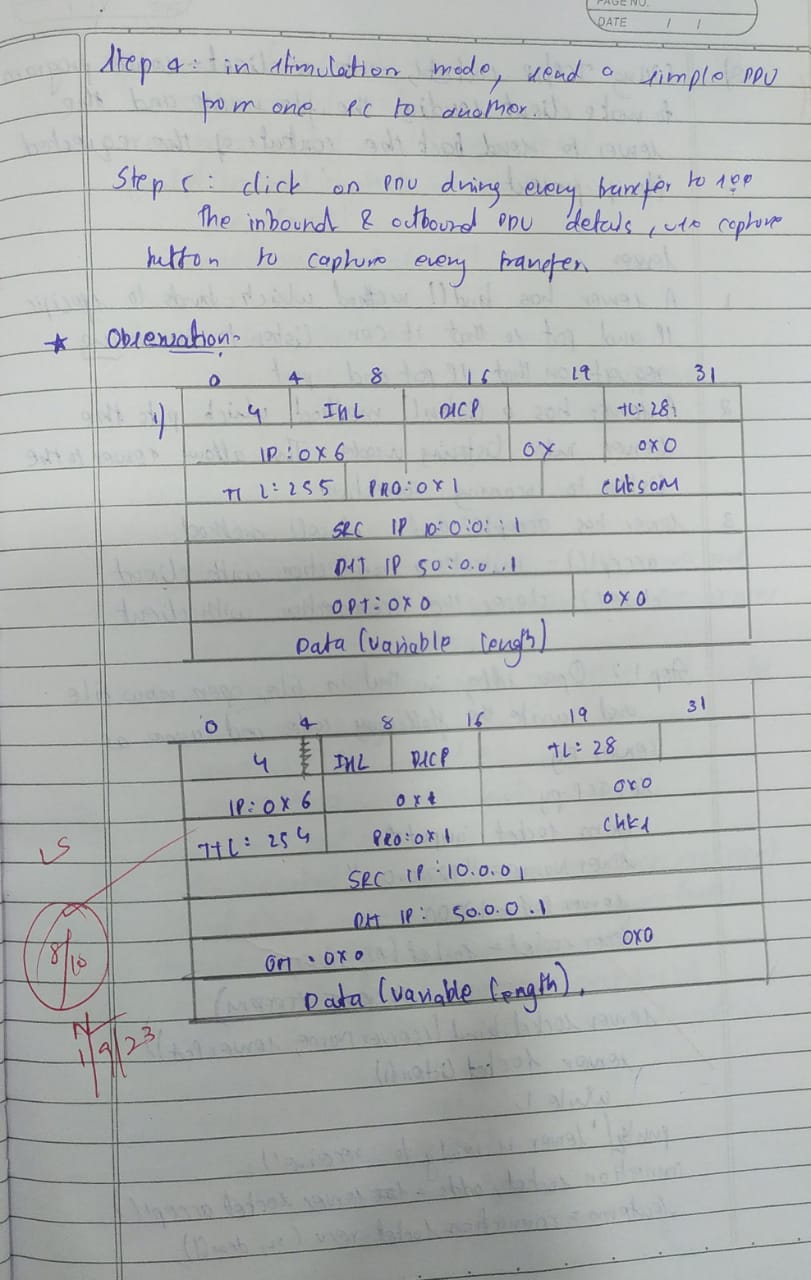 PAGE NO.
DATE / /
Step 4: in stimulation mode, send a simple PDU
from one PC to another.
Step 5: click on PDU during every transfer to see
the inbound & outbound PDU details, use capture
button to capture every transfer.
* Observation:-
0 4 8 16 19 31
1) 4 IHL DSCP TL: 28
ID: 0x6 0x 0x0
TTL: 255 PRO: 0x1 CHKSUM
SRC IP 10:0:0::1
DST IP 50:0.0..1
OPT: 0x0 0x0
Data (variable length)
0 4 8 16 19 31
4 IHL DSCP TL: 28
ID: 0x6 0x0
TTL: 254 PRO: 0x1
SRC IP: 10.0.01
DST IP: 50.0.0.1
OPT: 0x0 0x0
Data (variable length).
8/10
1/9/23